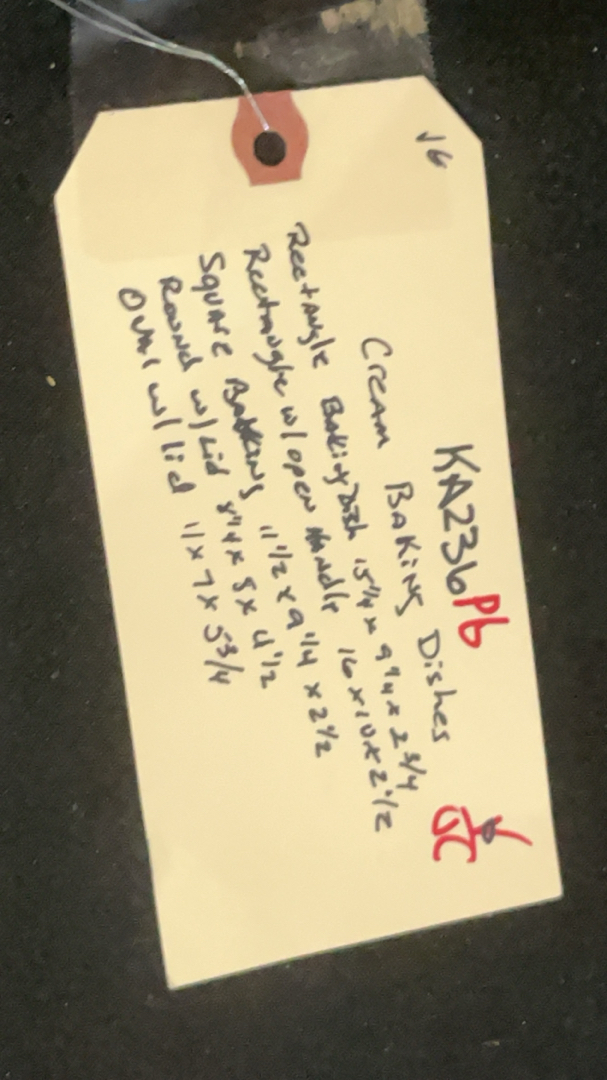 J6
KA236P6
Cream Baking Dishes JC
Rectangle Baking Dish 15 1/4 x 9 1/4 x 2 3/4
Rectangle w/ open Handle 16 x 10 x 2 1/2
Square Baking 11 1/2 x 9 1/4 x 2 1/2
Round w/ Lid x 5 x 4 1/2
Oval w/ lid 11 x 7 x 5 3/4